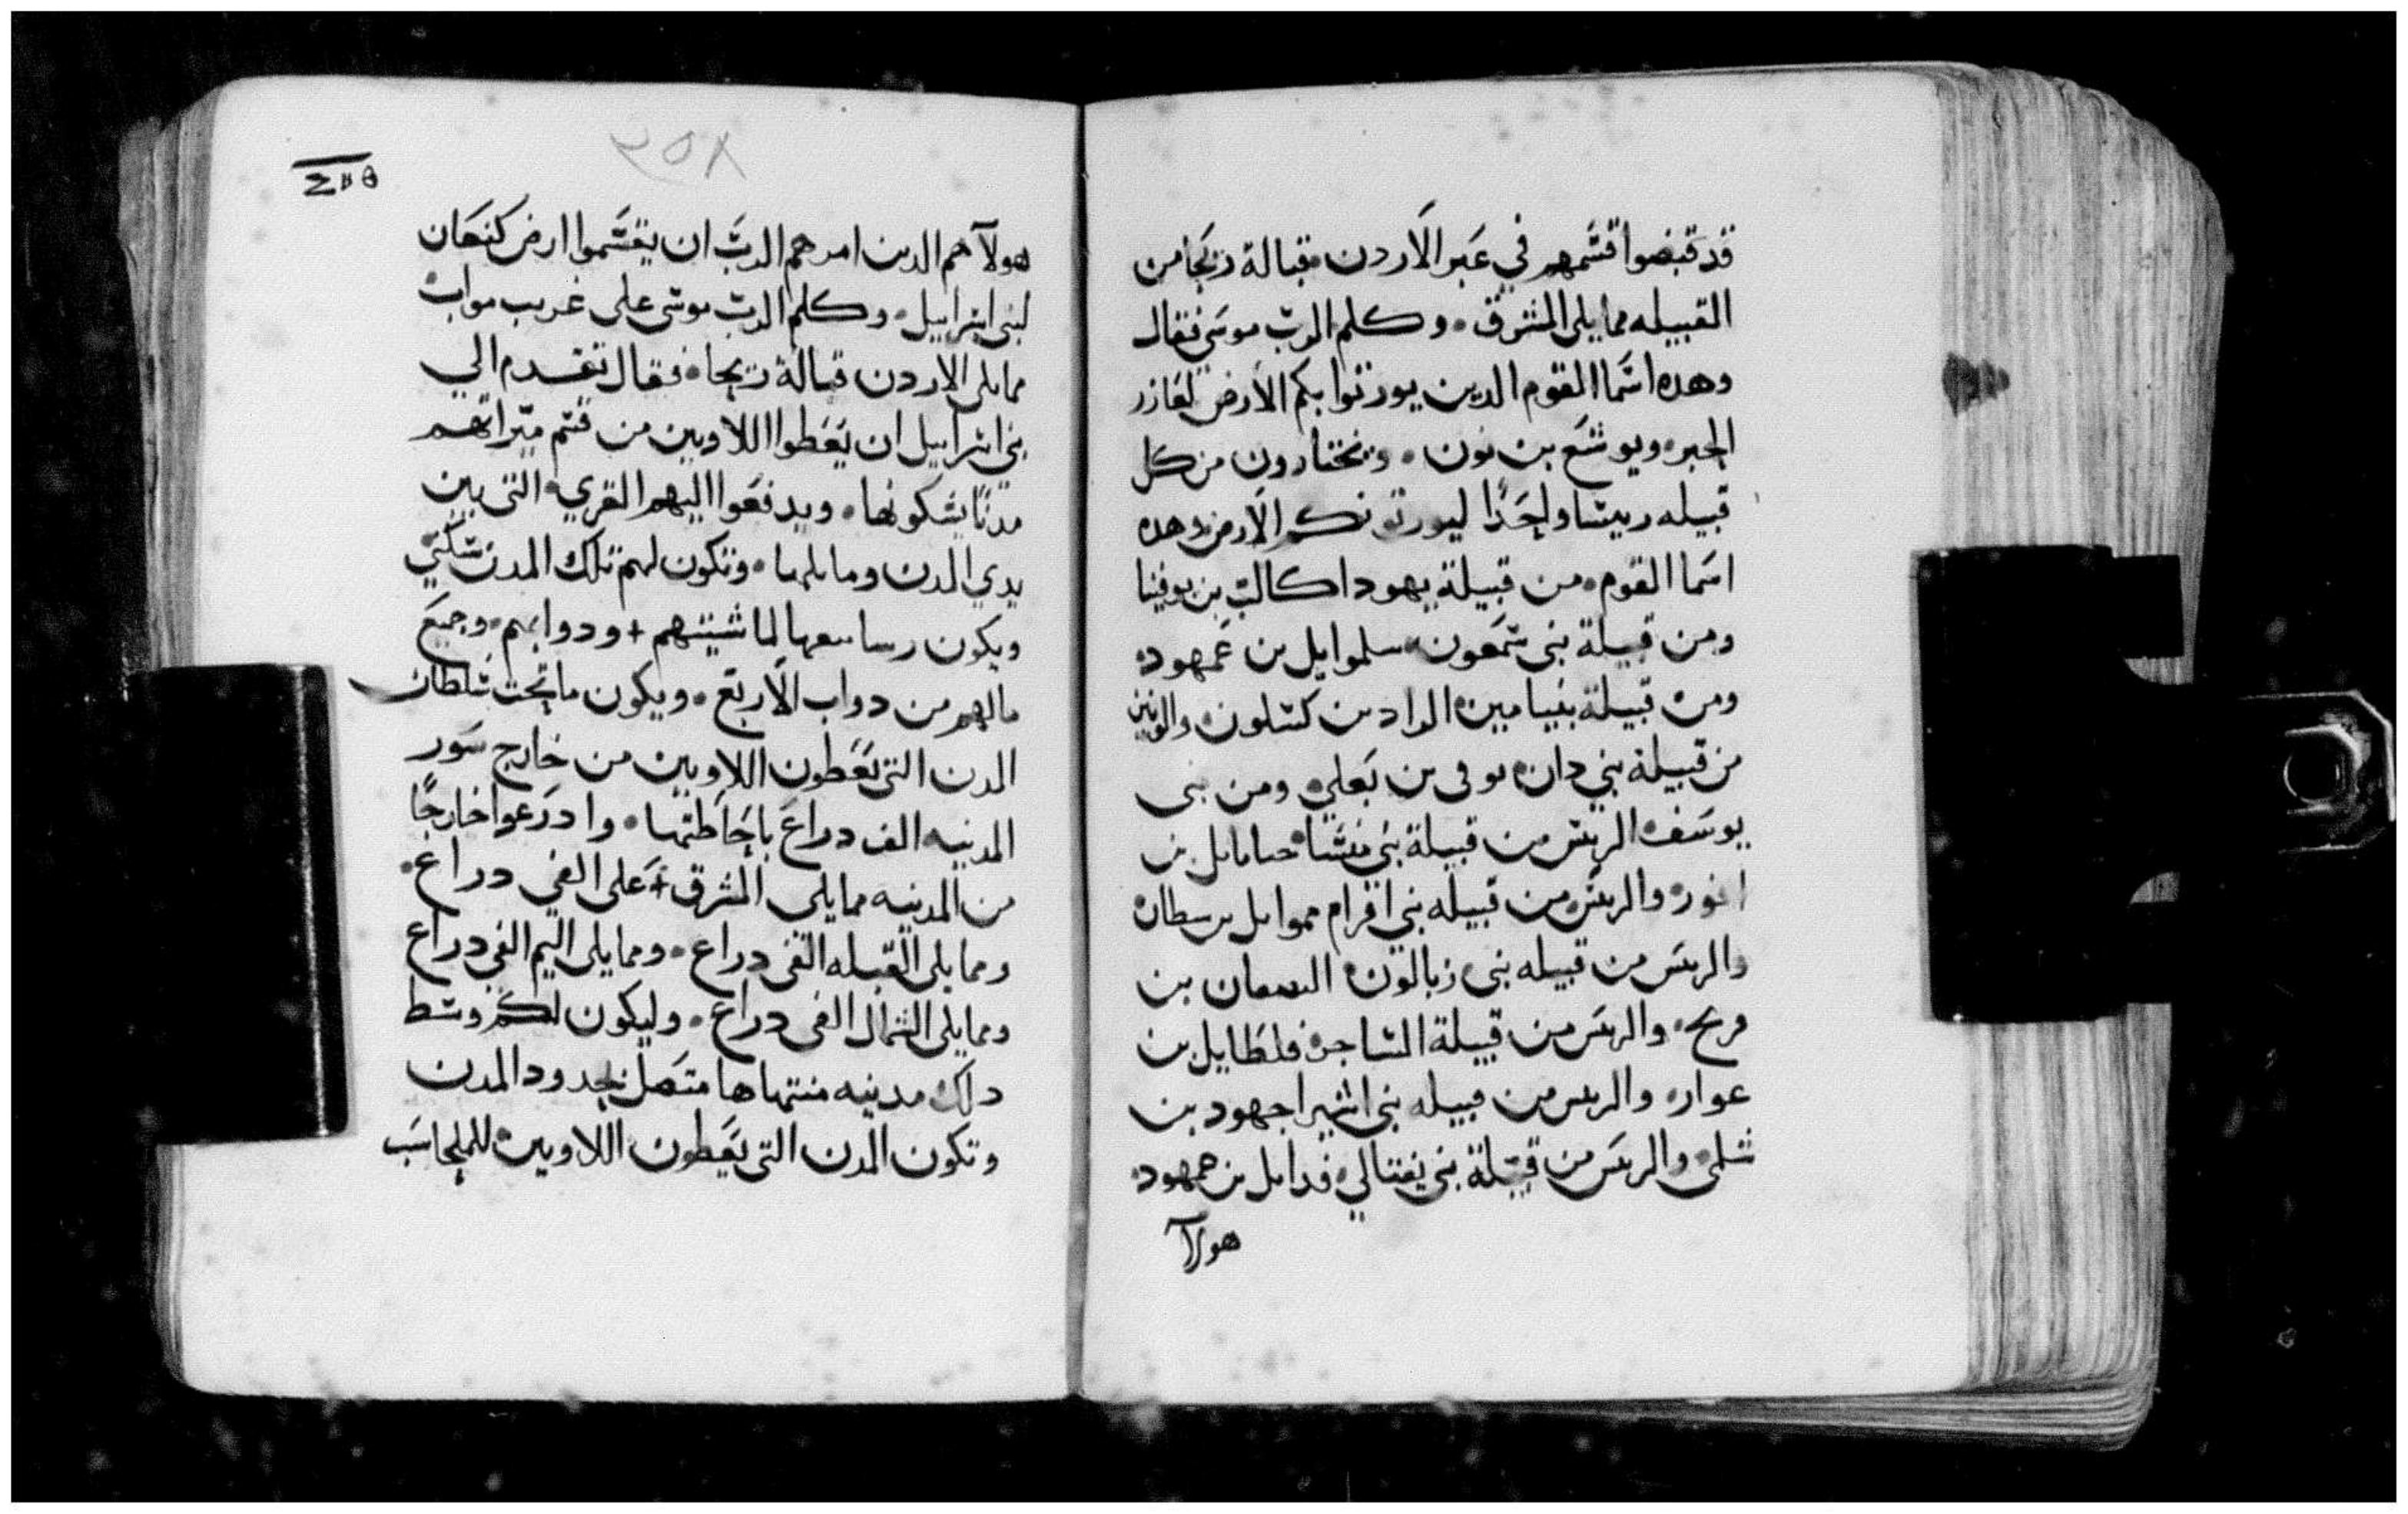 قد قبضوا قسمهم في عبر الاردن مقبالة ريحا من
القبيله مما يلي المشرق . وكلم الرب موسى فقال
وهده اسما القوم الدين يورتوا بكم الارض لعازر
الحبر . ويوشع بن نون . وتختارون من كل
قبيله رييسا واحدا ليورتونكم الارض وهده
اسما القوم . من قبيلة يهودا كالب بن يوفنيا
ومن قبيلة بني شمعون . سلموايل بن عمهود .
ومن قبيلة بنيامين . الداد بن كسلون . والريس
من قبيلة بني دان . بن يعلي . ومن بني
يوسف . الريس من قبيلة بني منسا . بن
افود . والريس من قبيله بني افرام مموايل بن سطان
والريس من قبيله بني زبالون . بن
والريس من قبيلة الساجر . فلطايل بن
عوار . والريس من قبيله بني اشير اجهود بن
شلمى . والريس من قبيلة بني نفتالي . فدايل بن حمهود .
هولآ
٢٥٨
هولآ هم الدين امرهم الرب ان يقسموا ارض كنعان
لبني اسراييل . وكلم الرب موسى على غريب مواب
مما يلي الاردن قبالة ريحا . فقال تقدم الي
بني اسراييل ان يعطوا اللاويين من قسم ميراتهم
مدنا يسكونها . ويدفعوا اليهم القري التي بين
يدي المدن وما يليها . وتكون لهم تلك المدن سكني
ويكون رساتيقها لماشيتهم + ودوابهم . وجميع
مالهم من دواب الاربع . ويكون ما تحت سلطان
المدن التي يعطون اللاويين من خارج سور
المدينه الف دراع باحاطتها . وادرعوا خارجا
من المدينه مما يلي المشرق + على الفي دراع .
ومما يلي القبله الفي دراع . ومما يلي اليم الفي دراع
ومما يلي الشمال الفي دراع . وليكون لكم وسط
دلك مدينه منتهاها متصل بحدود المدن
وتكون المدن التي يعطون اللاويين . للملجا ست